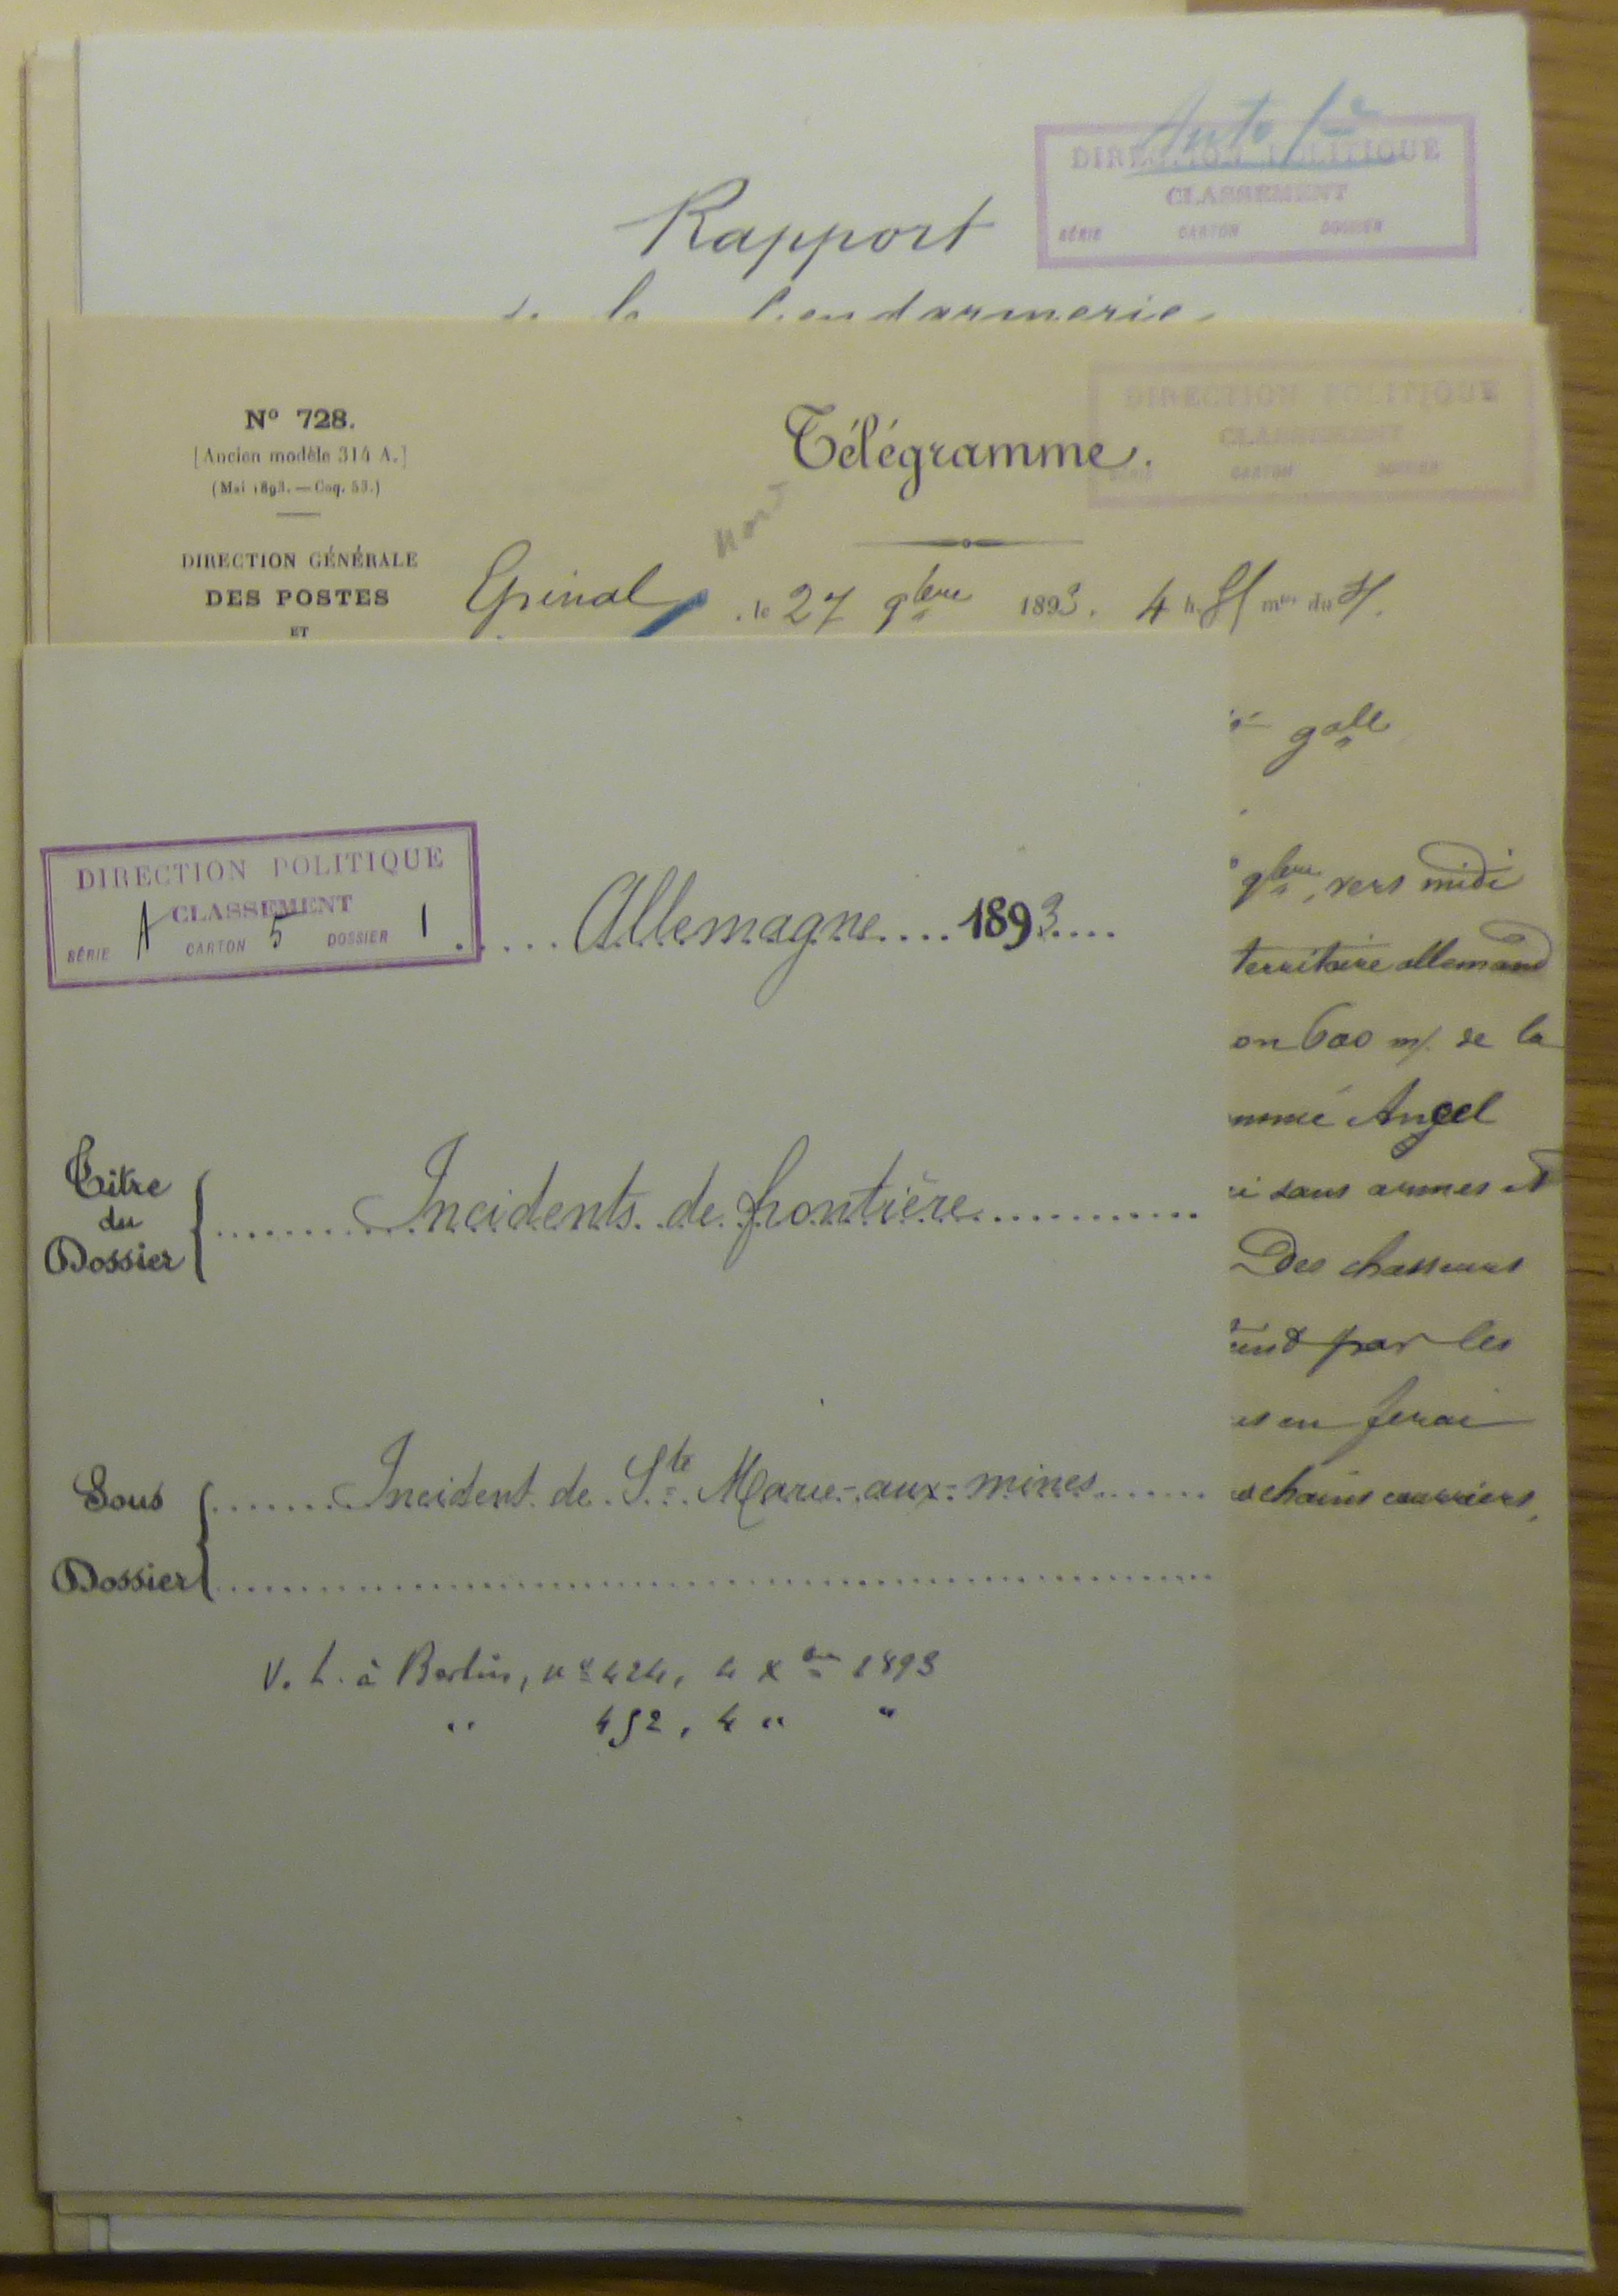 Auto
DIRECTION POLITIQUE
CLASSEMENT
SÉRIE CARTON DOSSIER
Rapport
de la Gendarmerie
DIRECTION POLITIQUE
CLASSEMENT
SÉRIE CARTON DOSSIER
N° 728.
[Ancien modèle 314 A.]
(Mai 1893. — Coq. 53.)
Télégramme.
DIRECTION GÉNÉRALE
DES POSTES
ET
Epinal, le 27 9bre 1893. 4 h. mes du
gale
9bre, vers midi
territoire allemand
on 600 m/. de la
mmé Angel
i sans armes et
Des chasseurs
par les
es en ferai
ochains courriers.
DIRECTION POLITIQUE
CLASSEMENT
SÉRIE A CARTON 5 DOSSIER 1
Allemagne 1893
Titre
du
Dossier
Incidents de frontière
Sous
Dossier
Incident de Ste Marie-aux-mines
V. L. à Berlin, n° 424, 4 Xbre 1893
" 452, 4 " "